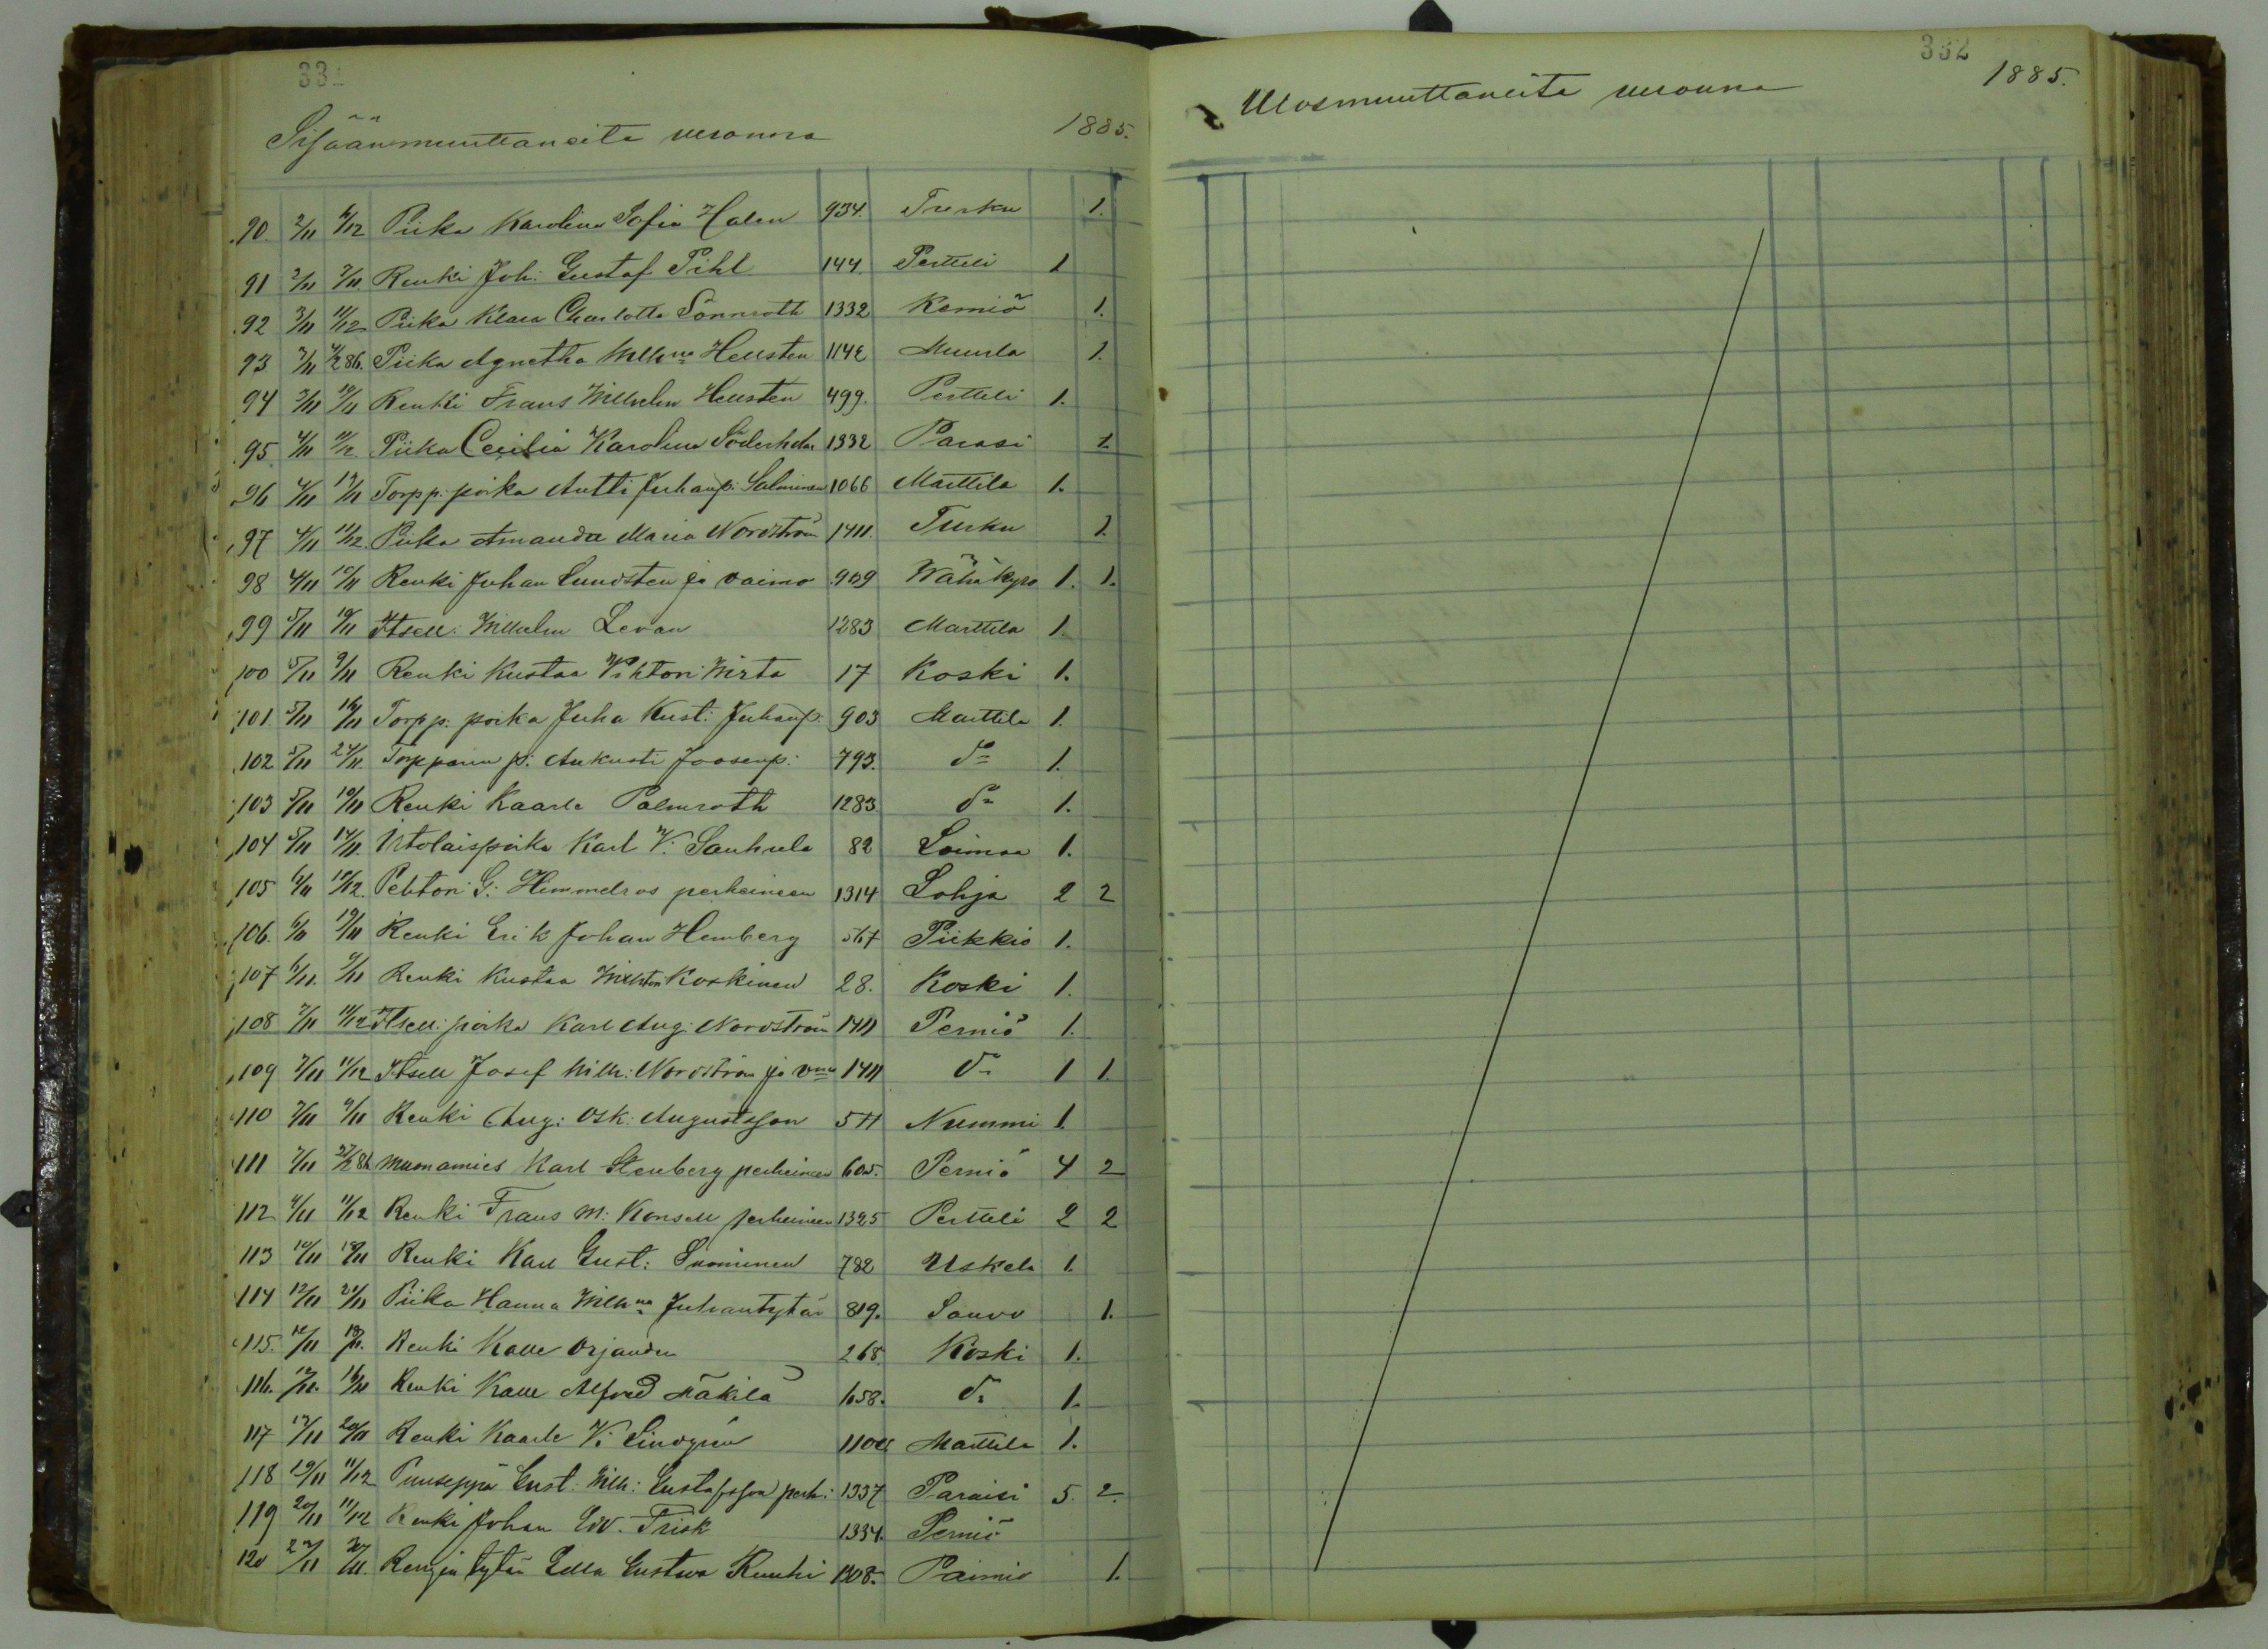 331
Sisäänmuuttaneita vuonna 1885.
90. 2/11 6/12 Piika Karolina Sofia Halen 934. Turku 1.
91 2/11 7/11 Renki Joh: Gustaf Pihl 144. Pertteli 1
92 3/11 11/12 Piika Klara Charlotta Lönnroth 1332 Kemiö 1.
93 3/11 4/2 86. Piika Agnetha Wilhna Hellsten 1142 Muurla 1.
94 3/11 10/11 Renki Frans Wilhelm Hellsten 499. Pertteli 1.
95 4/11 11/12 Piika Cecilia Karolina Söderholm 1332 Parasi 1
96 4/11 13/11 Torpp: poika Antti Juhanp: Salminen 1066 Marttila 1.
97 4/11 11/12 Piika Amanda Maria Nordström 1411. Turku 1.
98 4/11 10/11 Renki Johan Sundsten ja vaimo 959 Wähäkyrö 1. 1.
99 5/11 10/11 Itsell: Wilhelm Levan 1283 Marttila 1.
100 5/11 9/11 Renki Kustaa Vihtori Wirta 17 Koski 1.
101. 5/11 16/11 Torpp: poika Juha Kust: Juhanp: 903 Marttila 1.
102 5/11 24/11. Torpparin p: Aukusti Joosenp: 793. do 1.
103 5/11 10/11 Renki Kaarle Palmroth 1283. do 1.
104 5/11 14/11. Ulolaispoika Karl V. Sauhula 82 Loimaa 1.
105 6/11 10/12. Pehtori G: Himmelros perheineen 1314 Lohja 2 2
106. 6/11 19/11 Renki Erik Johan Hemberg 567 Piikkiö 1.
107 6/11. 9/11 Renki Kustaa Wihtori Koskinen 28. Koski 1.
108 7/11 11/12 Itsell: poika Karl Aug: Nordström 1411 Perniö 1.
109 7/11 11/12 Itsell Josef Wilh: Nordström ja vmo 1411 do 1 1.
110 7/11 9/11 Renki Aug: Osk: Augustsson 511 Nummi 1.
111 7/11 27/2 86 Muonamies Karl Stenberg perheineen 605. Perniö 4 2
112 9/11 11/12 Renki Frans M: Konsell perheineen 1325 Pertteli 2 2
113 10/11 18/11 Renki Karl Gust: Suominen 782 Uskela 1.
114 12/11 21/11 Piika Hanna Wilhna Juhantytär 819. Sauvo 1.
115. 12/11 18/11. Renki Kalle Orjanden 268. Koski 1.
116. 12/11. 16/11 Renki Kalle Alfred Mäkilä 658. do 1.
117 13/11 20/11 Renki Kaarle V: Lindgren 1104 Marttila 1.
118 19/11 11/12 Puuseppä Gust: Wilh: Gustafsson perh: 1337 Paraisi 5. 2.
119 20/11 11/12 Renki Johan Edv. Frisk 1334. Perniö
120 22/11 30/11. Rengin tytär Edla Gustava Ruuhi 1308. Paimio 1.
332
Ulosmuuttaneita vuonna 1885.